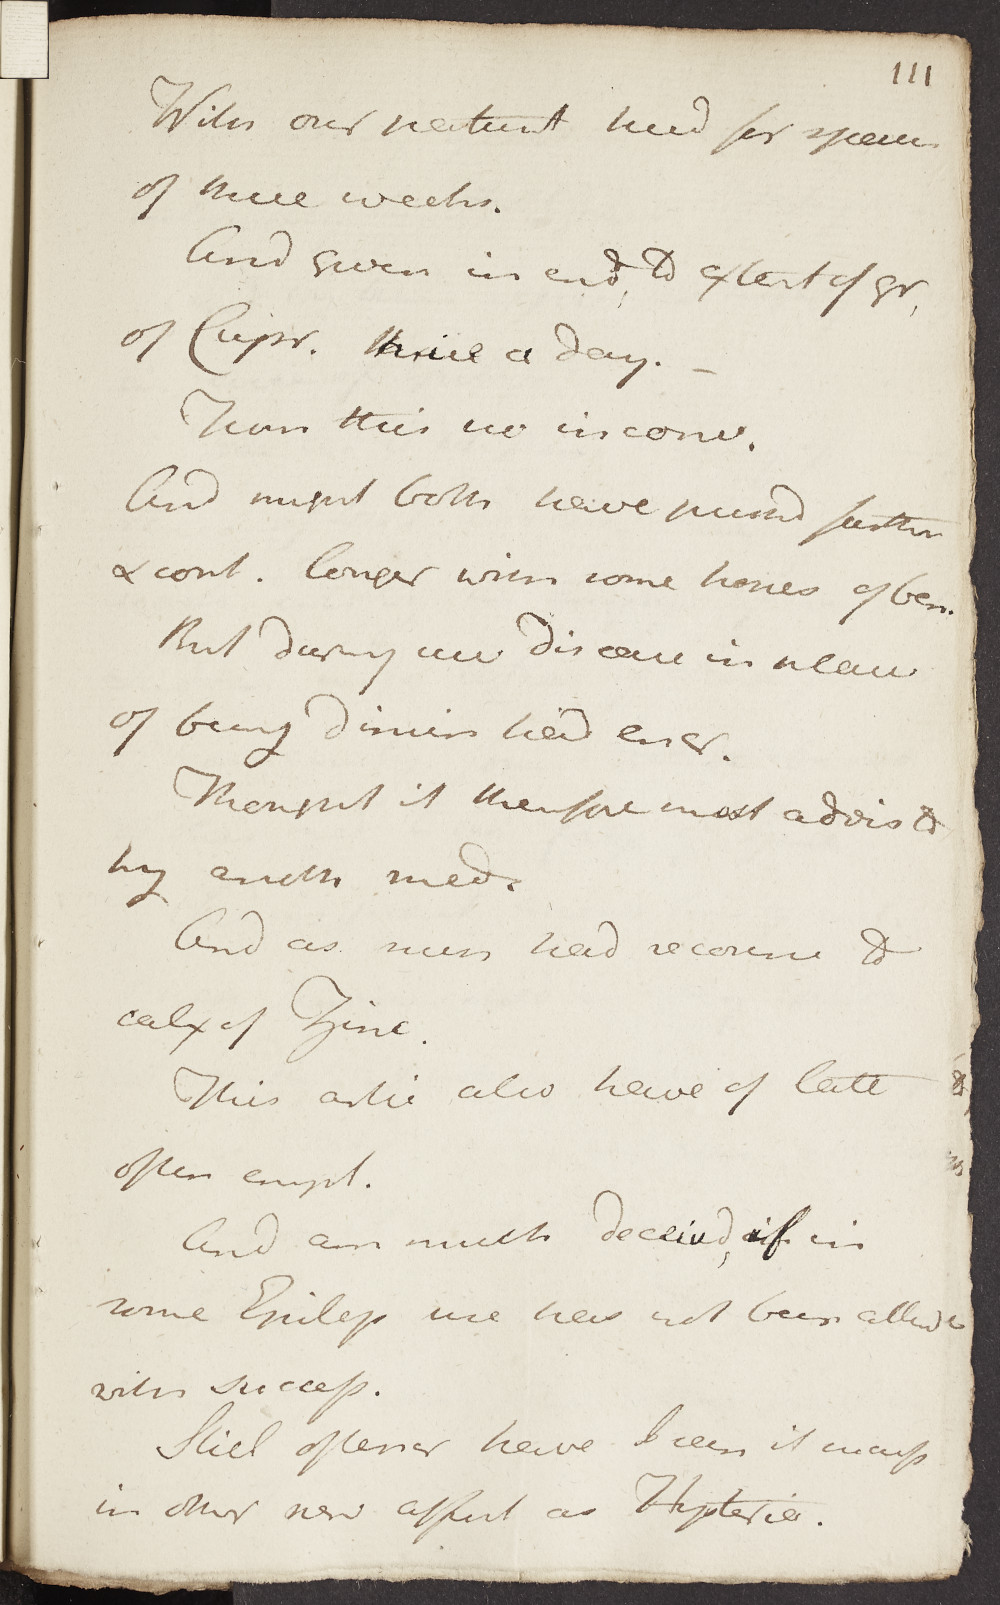 111
With our patient tried for space
of three weeks.
And given in end, to extent of gr,
of Cupr. thrice a day. –
From this no inconv.
And might both have pushd farther
& cont. longer with some hopes of ben.
But during use disease in place
of being diminishd encr.
Thought it therefore most advis to
try anoth med.
And as such had recourse to
calx of Zinc.
This artic also have of late
often empl.
And am much deceivd, if in
some Epilep use has not been attend
with success.
Still oftener have I seen it succ
in other nerv affect as Hysteria.